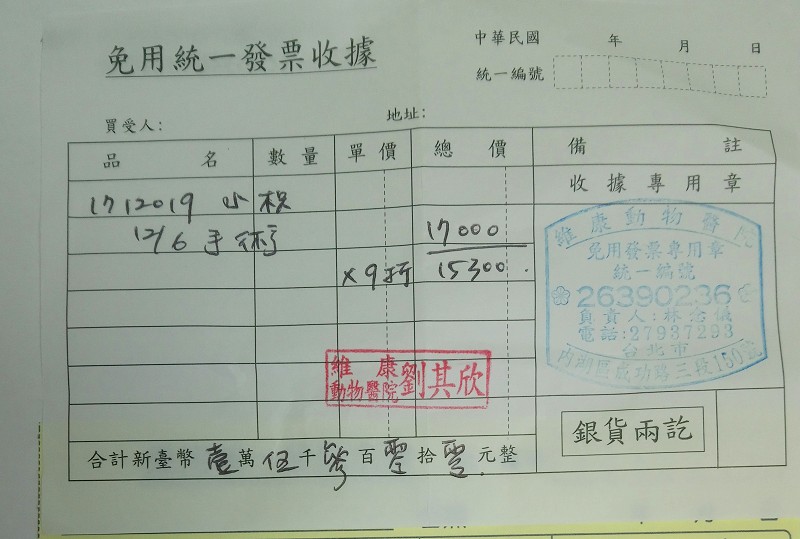 免用統一發票收據
中華民國 年 月 日
統一編號
買受人:
地址:
品名 數量 單價 總價 備註
收據專用章
1712019 小根
12/6 手術 17000
×9折 15300.
維康動物醫院
免用發票專用章
統一編號
26390236
負責人:林念儀
電話:27937293
台北市
內湖區成功路三段150號
維康
動物醫院 劉其欣
銀貨兩訖
合計新臺幣 壹 萬 伍 千 百 零 拾 零 元整